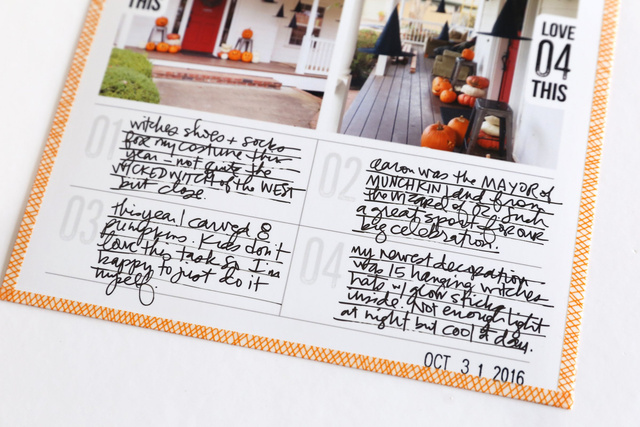 THIS
LOVE
04
THIS
01
witches shoes + socks
for my costume this
year - not quite the
WICKED WITCH of the WEST
but close.
02
aaron was the MAYOR of
MUNCHKIN land from
the wizard of OZ. Such
a great sport for our
big celebration.
03
this year I carved 8
pumpkins. Kids don't
love this task so I'm
happy to just do it
myself.
04
my newest decoration
was 15 hanging witches
hats w/ glow sticks
inside. Not enough light
at night but cool a day.
OCT 31 2016